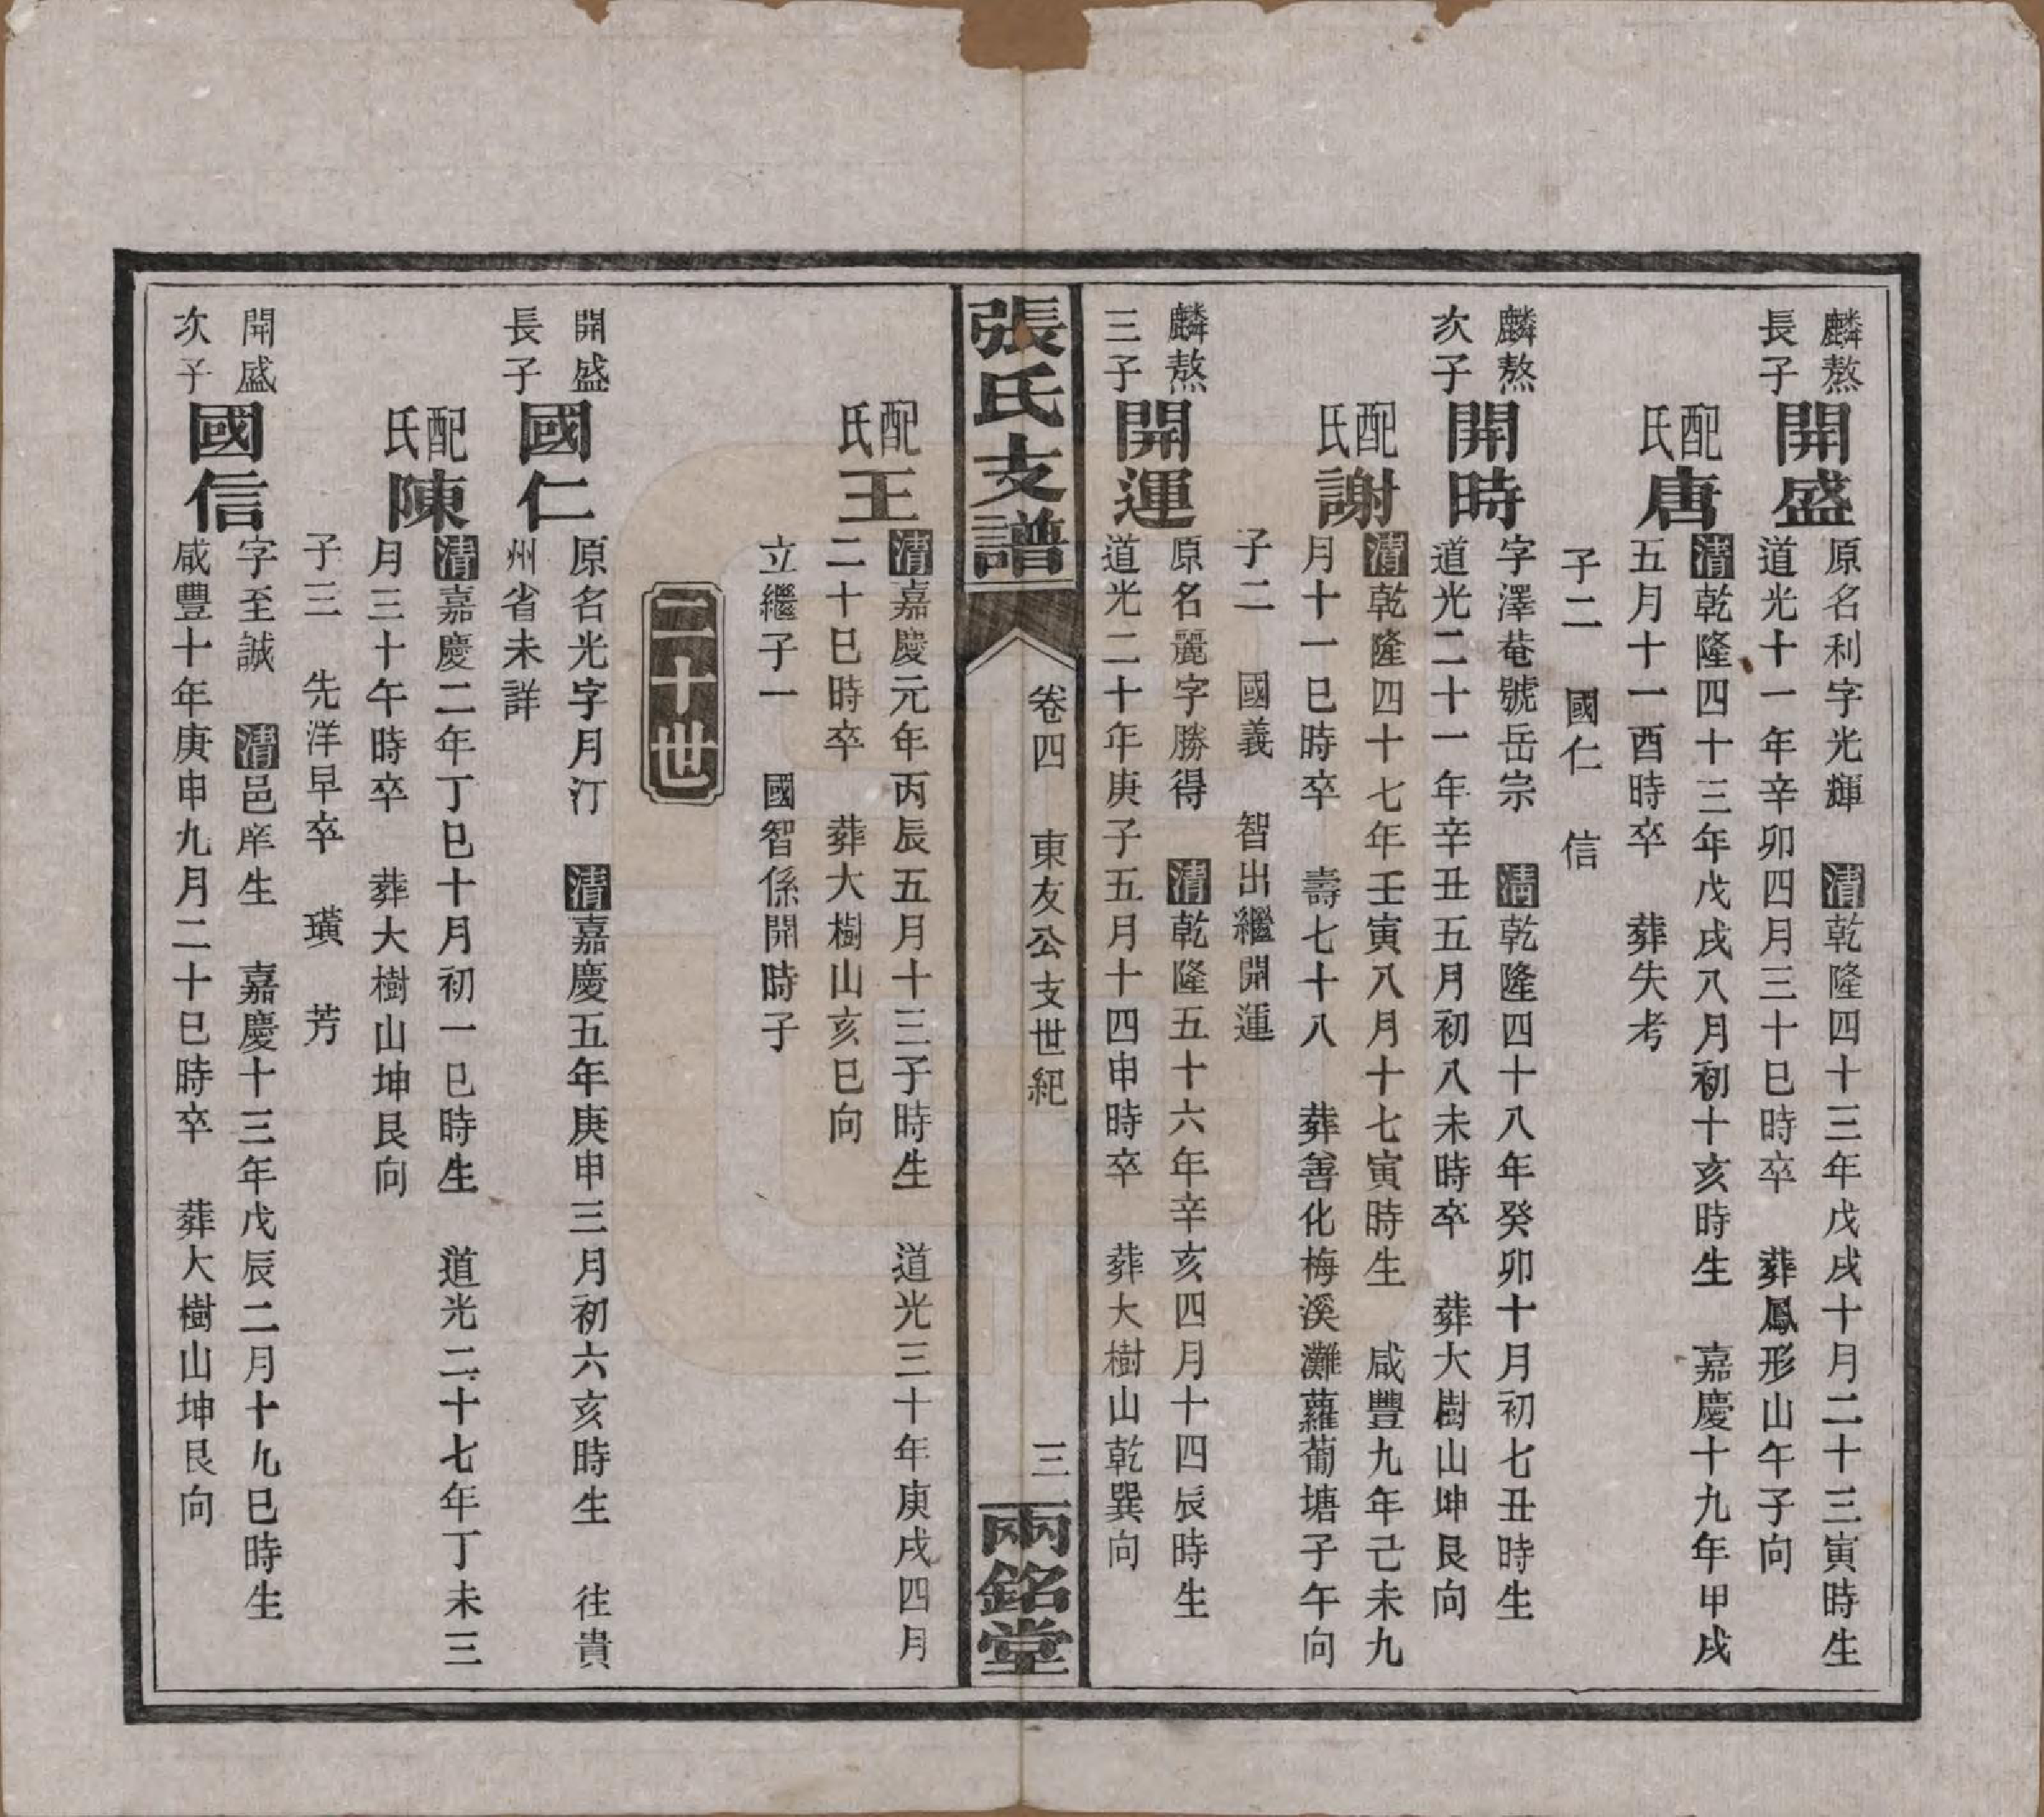 麟熬長子開盛原名利字光輝　清乾隆四十三年戊戌十月二十三寅時生
道光十一年辛卯四月三十巳時卒　葬鳳形山午子向
配氏唐清乾隆四十三年戊戌八月初十亥時生　嘉慶十九年甲戌
五月十一酉時卒　葬失考
子二　國仁　信
麟熬次子開時字澤菴號岳宗　清乾隆四十八年癸卯十月初七丑時生
道光二十一年辛丑五月初八未時卒　葬大樹山坤艮向
配氏謝清乾隆四十七年壬寅八月十七寅時生　咸豐九年己未九
月十一巳時卒　壽七十八　葬善化梅溪灘蘿蔔塘子午向
子二　國義　智出繼開運
麟熬三子開運原名麗字勝得　清乾隆五十六年辛亥四月十四辰時生
道光二十年庚子五月十四申時卒　葬大樹山乾巽向
張氏支譜　卷四　東友公支世紀　三　兩銘堂
配氏王清嘉慶元年丙辰五月十三子時生　道光三十年庚戌四月
二十巳時卒　葬大樹山亥巳向
立繼子一　國智係開時子
二十世
開盛長子國仁原名光字月汀　清嘉慶五年庚申三月初六亥時生　往貴
州省未詳
配氏陳清嘉慶二年丁巳十月初一巳時生　道光二十七年丁未三
月三十午時卒　葬大樹山坤艮向
子三　先洋早卒　璜　芳
開盛次子國信字至誠　清邑庠生　嘉慶十三年戊辰二月十九巳時生
咸豐十年庚申九月二十巳時卒　葬大樹山坤艮向